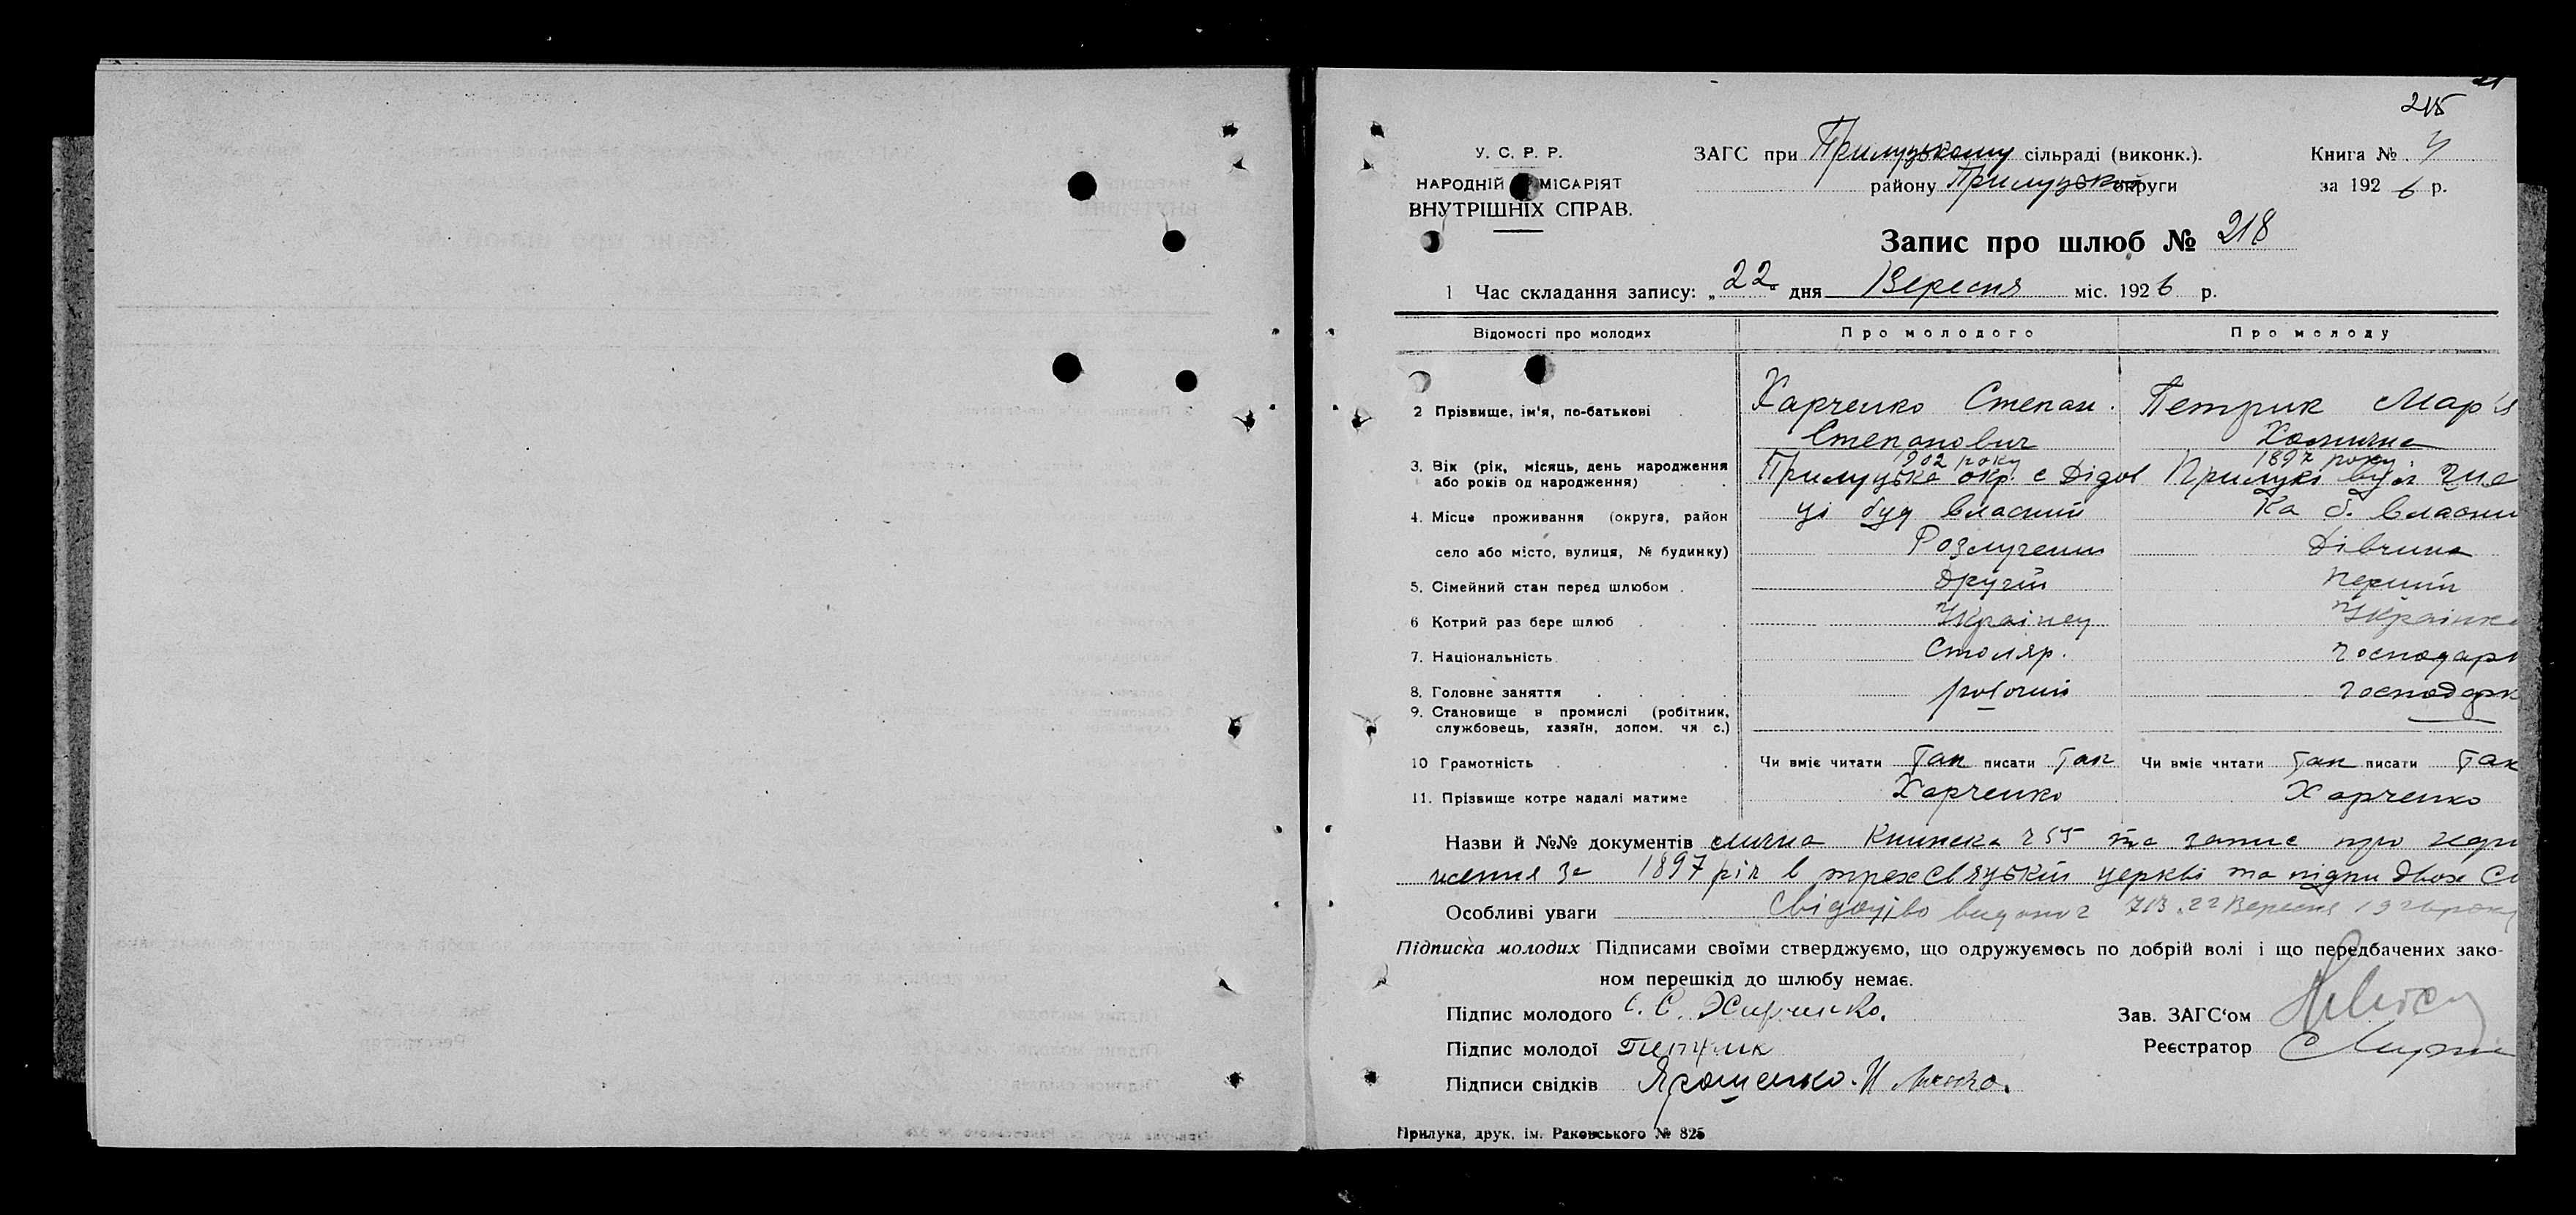 215
У. С. Р. Р.
НАРОДНІЙ КОМІСАРІЯТ
ВНУТРІШНІХ СПРАВ.
ЗАГС при Прилуцькому сільраді (виконк.).
району Прилуцької округи
Книга №
за 1926 р.
Запис про шлюб № 218
1 Час складання запису: „22" дня Вересня міс. 1926 р.
Відомості про молодих Про молодого Про молоду
2 Прізвище, ім'я, по-батькові Харченко Степан Петрик Мар'я
Степанович Хомична
1902 року 1897 року
3. Вік (рік, місяць, день народження Прилуцька окр. с Дідов Прилуки вул
або років од народження)
4. Місце проживання (округа, район ці буд власний ка б. власни
село або місто, вулиця, № будинку) Розлучений Дівчина
5. Сімейний стан перед шлюбом Другий перший
6 Котрий раз бере шлюб Українец Українка
7. Національність Столяр. господарк
8. Головне заняття робочий господарк
9. Становище в промислі (робітник,
службовець, хазяїн, допом. чи с.)
10 Грамотність Чи вміє читати так писати так Чи вміє читати так писати так
11. Прізвище котре надалі матиме Харченко Харченко
Назви й №№ документів книжка та запис про
за 1897 рік в трехсвяцькій церкві та підпи двох
Особливі уваги видано 713 22 Вересня 1926 року
Підписка молодих Підписами своїми стверджуємо, що одружуємось по добрій волі і що передбачених зако-
ном перешкід до шлюбу немає.
Підпис молодого С. Харченко.
Зав. ЗАГС'ом
Підпис молодої Петрик
Реєстратор
Підписи свідків Ярошенко.
Прилука, друк. ім. Раковського № 825